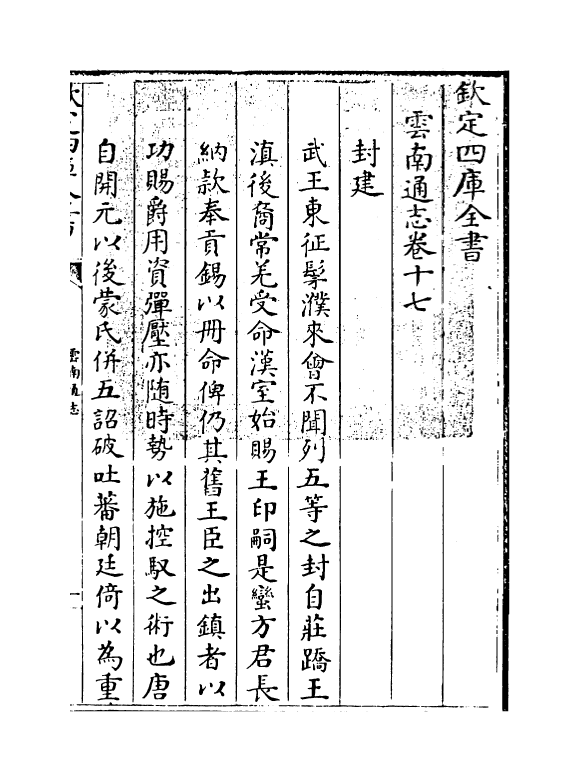 欽定四庫全書
雲南通志卷十七
封建
武王東征髳濮來會不聞列五等之封自莊蹻王
滇後裔常羌受命漢室始賜王印嗣是蠻方君長
納款奉貢錫以冊命俾仍其舊王臣之出鎮者以
功賜爵用資彈壓亦随時勢以施控馭之術也唐
自開元以後蒙氏併五詔破吐蕃朝廷倚以為重
雲南通志